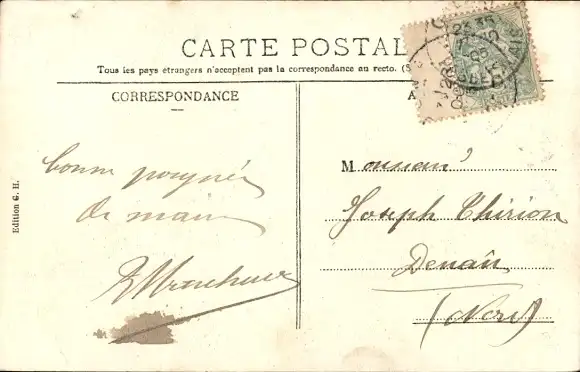 CARTE POSTAL
Tous les pays étrangers n'acceptent pas la correspondance au recto. (S
CORRESPONDANCE
A
bonne poignée
de main
Monsieur
Joseph Thirion
Denain
(Nord)
Edition G. H.